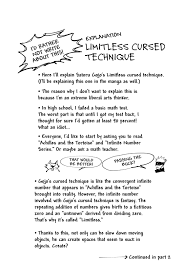 I'D RATHER
NOT WRITE
ABOUT THIS!
EXPLANATION
LIMITLESS CURSED
TECHNIQUE
• Here I'll explain Satoru Gojo's Limitless cursed technique.
(I'll be explaining this one in the manga as well.)
• The reason why I don't want to explain this is
because I'm an extreme liberal arts thinker.
• In high school, I failed a basic math test.
The worst part is that until I got my test back, I
thought for sure I'd gotten at least 90 percent!
What an idiot...
• Everyone, I'd like to start by asking you to read
"Achilles and the Tortoise" and "Infinite Number
Series." Or maybe ask a math teacher.
THAT WOULD
BE BETTER!
PASSING THE
BUCK?
• Gojo's cursed technique is like the convergent infinite
number that appears in "Achilles and the Tortoise"
brought into reality. However, the infinite number
involved with Gojo's cursed technique is fantasy. The
repeating addition of numbers gives birth to a fictitious
zero and an "unknown" derived from dividing zero.
That's why it's called "Limitless."
• Thanks to this, not only can he slow down moving
objects, he can create spaces that seem to suck in
objects. Create?
Continued in part 2.